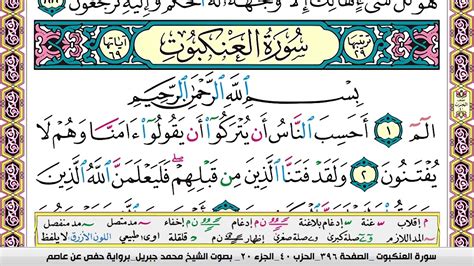 هو كل شيء هالك إلا وجهه له الحكم وإليه ترجعون
ترتيبها ٢٩ سُورَةُ العَنكَبُوتِ آياتها ٦٩
بِسْمِ ٱللَّهِ ٱلرَّحْمَٰنِ ٱلرَّحِيمِ
الٓمٓ ١ أَحَسِبَ ٱلنَّاسُ أَن يُتْرَكُوٓا۟ أَن يَقُولُوٓا۟ ءَامَنَّا وَهُمْ لَا
يُفْتَنُونَ ٢ وَلَقَدْ فَتَنَّا ٱلَّذِينَ مِن قَبْلِهِمْ ۖ فَلَيَعْلَمَنَّ ٱللَّهُ ٱلَّذِينَ
م إقلاب غنة إدغام بلاغنة ن إدغام إخفاء مد متصل مد منفصل
المد اللازم صلة صغرى صلة كبرى قلقلة اوى: طبيعي اللون الأزرق: لا يلفظ
سورة العنكبوت _ الصفحة ٣٩٦_ الحزب ٤٠_ الجزء ٢٠_ بصوت الشيخ محمد جبريل_ برواية حفص عن عاصم